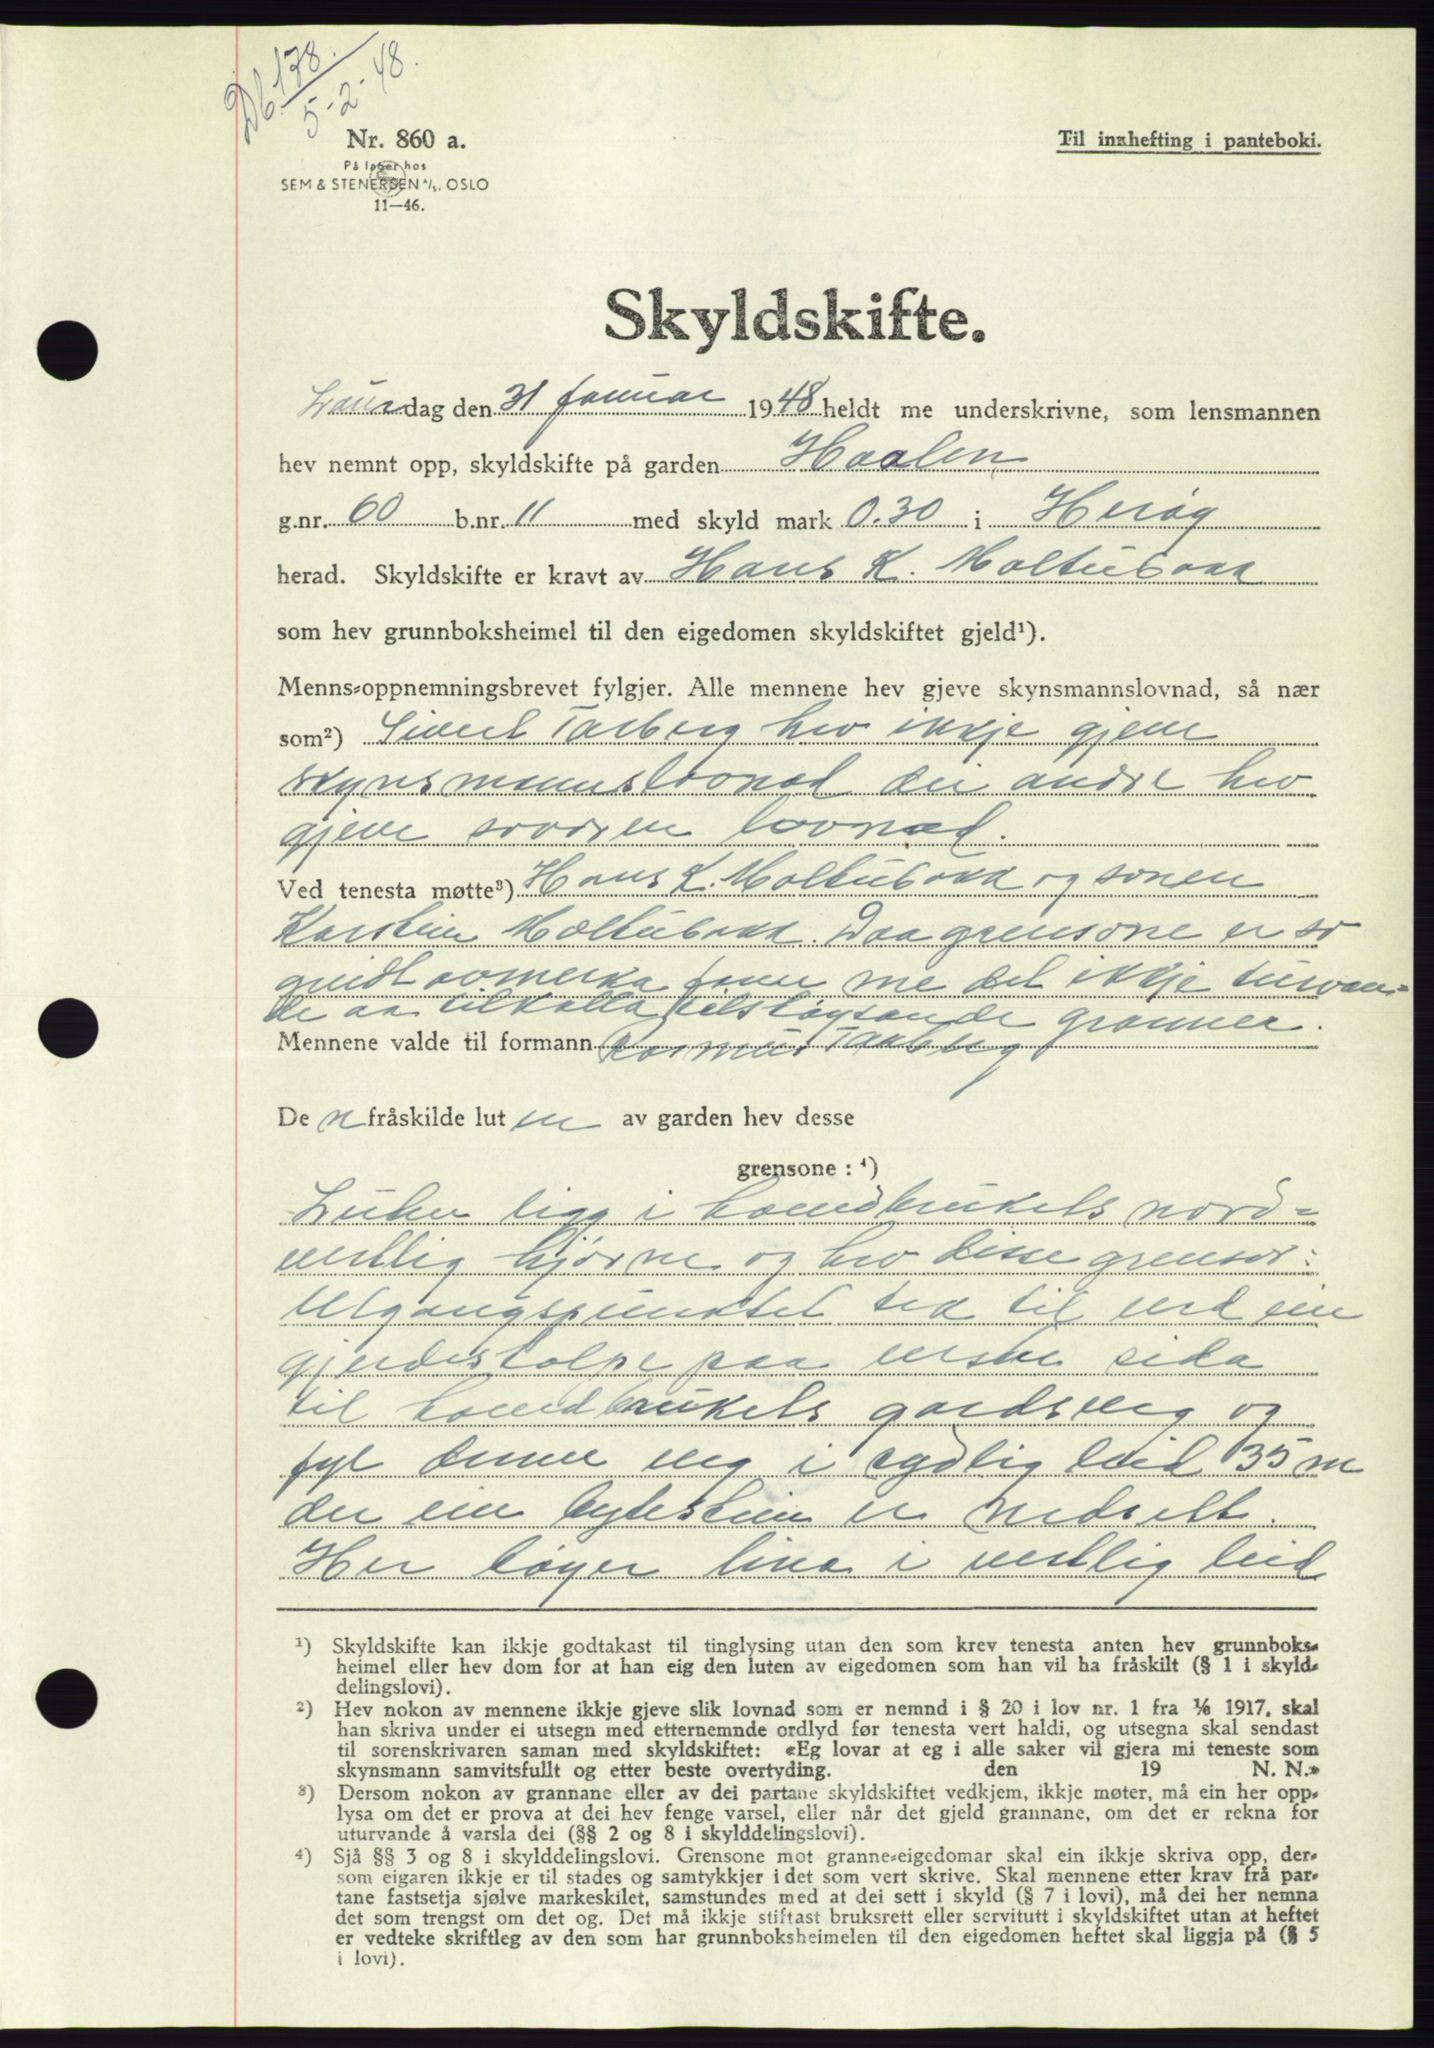 Db. 178.
5-2-48.
Nr. 860 a.
På lager hos
SEM & STENERSEN A/S. OSLO
11—46.
Til innhefting i panteboki.
Skyldskifte.
Laurdag den 31 januar 1948 heldt me underskrivne, som lensmannen
hev nemnt opp, skyldskifte på garden Haalen
g.nr. 60 b.nr. 11 med skyld mark 0.30 i Herøy
herad. Skyldskifte er kravt av Hans K. Moltubakk
som hev grunnboksheimel til den eigedomen skyldskiftet gjeld¹).
Menns-oppnemningsbrevet fylgjer. Alle mennene hev gjeve skynsmannslovnad, så nær
som²) Sivert Tarberg hev ikkje gjeve
skynsmannslovnad dei andre hev
gjeve lovnad.
Ved tenesta møtte³) Hans K. Moltubakk og sonen
Karstein Moltubakk. Daa grensone er so
godt avmerka finn me det ikkje turvan=
de aa tilkalla tilstøytande grannar.
Mennene valde til formann Rasmus Tarberg
De n fråskilde lut en av garden hev desse
grensone : ⁴)
Luten ligg i hovedbrukets nord=
vestlig hjørne og hev disse grensor:
Utgangspunktet tek til ved ein
gjerdestolpe paa verste sida
til hovedbrukets gardsveg og
fyl denne veg i sydlig leid 35 m
der ein bytestein er nedsett.
Her bøyer lina i vestlig leid
¹) Skyldskifte kan ikkje godtakast til tinglysing utan den som krev tenesta anten hev grunnboks-
heimel eller hev dom for at han eig den luten av eigedomen som han vil ha fråskilt (§ 1 i skyld-
delingslovi).
²) Hev nokon av mennene ikkje gjeve slik lovnad som er nemnd i § 20 i lov nr. 1 fra 1/6 1917, skal
han skriva under ei utsegn med etternemnde ordlyd før tenesta vert haldi, og utsegna skal sendast
til sorenskrivaren saman med skyldskiftet: «Eg lovar at eg i alle saker vil gjera mi teneste som
skynsmann samvitsfullt og etter beste overtyding. den 19 N. N.»
³) Dersom nokon av grannane eller av dei partane skyldskiftet vedkjem, ikkje møter, må ein her opp-
lysa om det er prova at dei hev fenge varsel, eller når det gjeld grannane, om det er rekna for
uturvande å varsla dei (§§ 2 og 8 i skylddelingslovi).
⁴) Sjå §§ 3 og 8 i skylddelingslovi. Grensone mot granne-eigedomar skal ein ikkje skriva opp, der-
som eigaren ikkje er til stades og samtykkjer i det som vert skrive. Skal mennene etter krav frå par-
tane fastsetja sjølve markeskilet, samstundes med at dei sett i skyld (§ 7 i lovi), må dei her nemna
det som trengst om det og. Det må ikkje stiftast bruksrett eller servitutt i skyldskiftet utan at heftet
er vedteke skriftleg av den som har grunnboksheimelen til den eigedomen heftet skal liggja på (§ 5
i lovi).